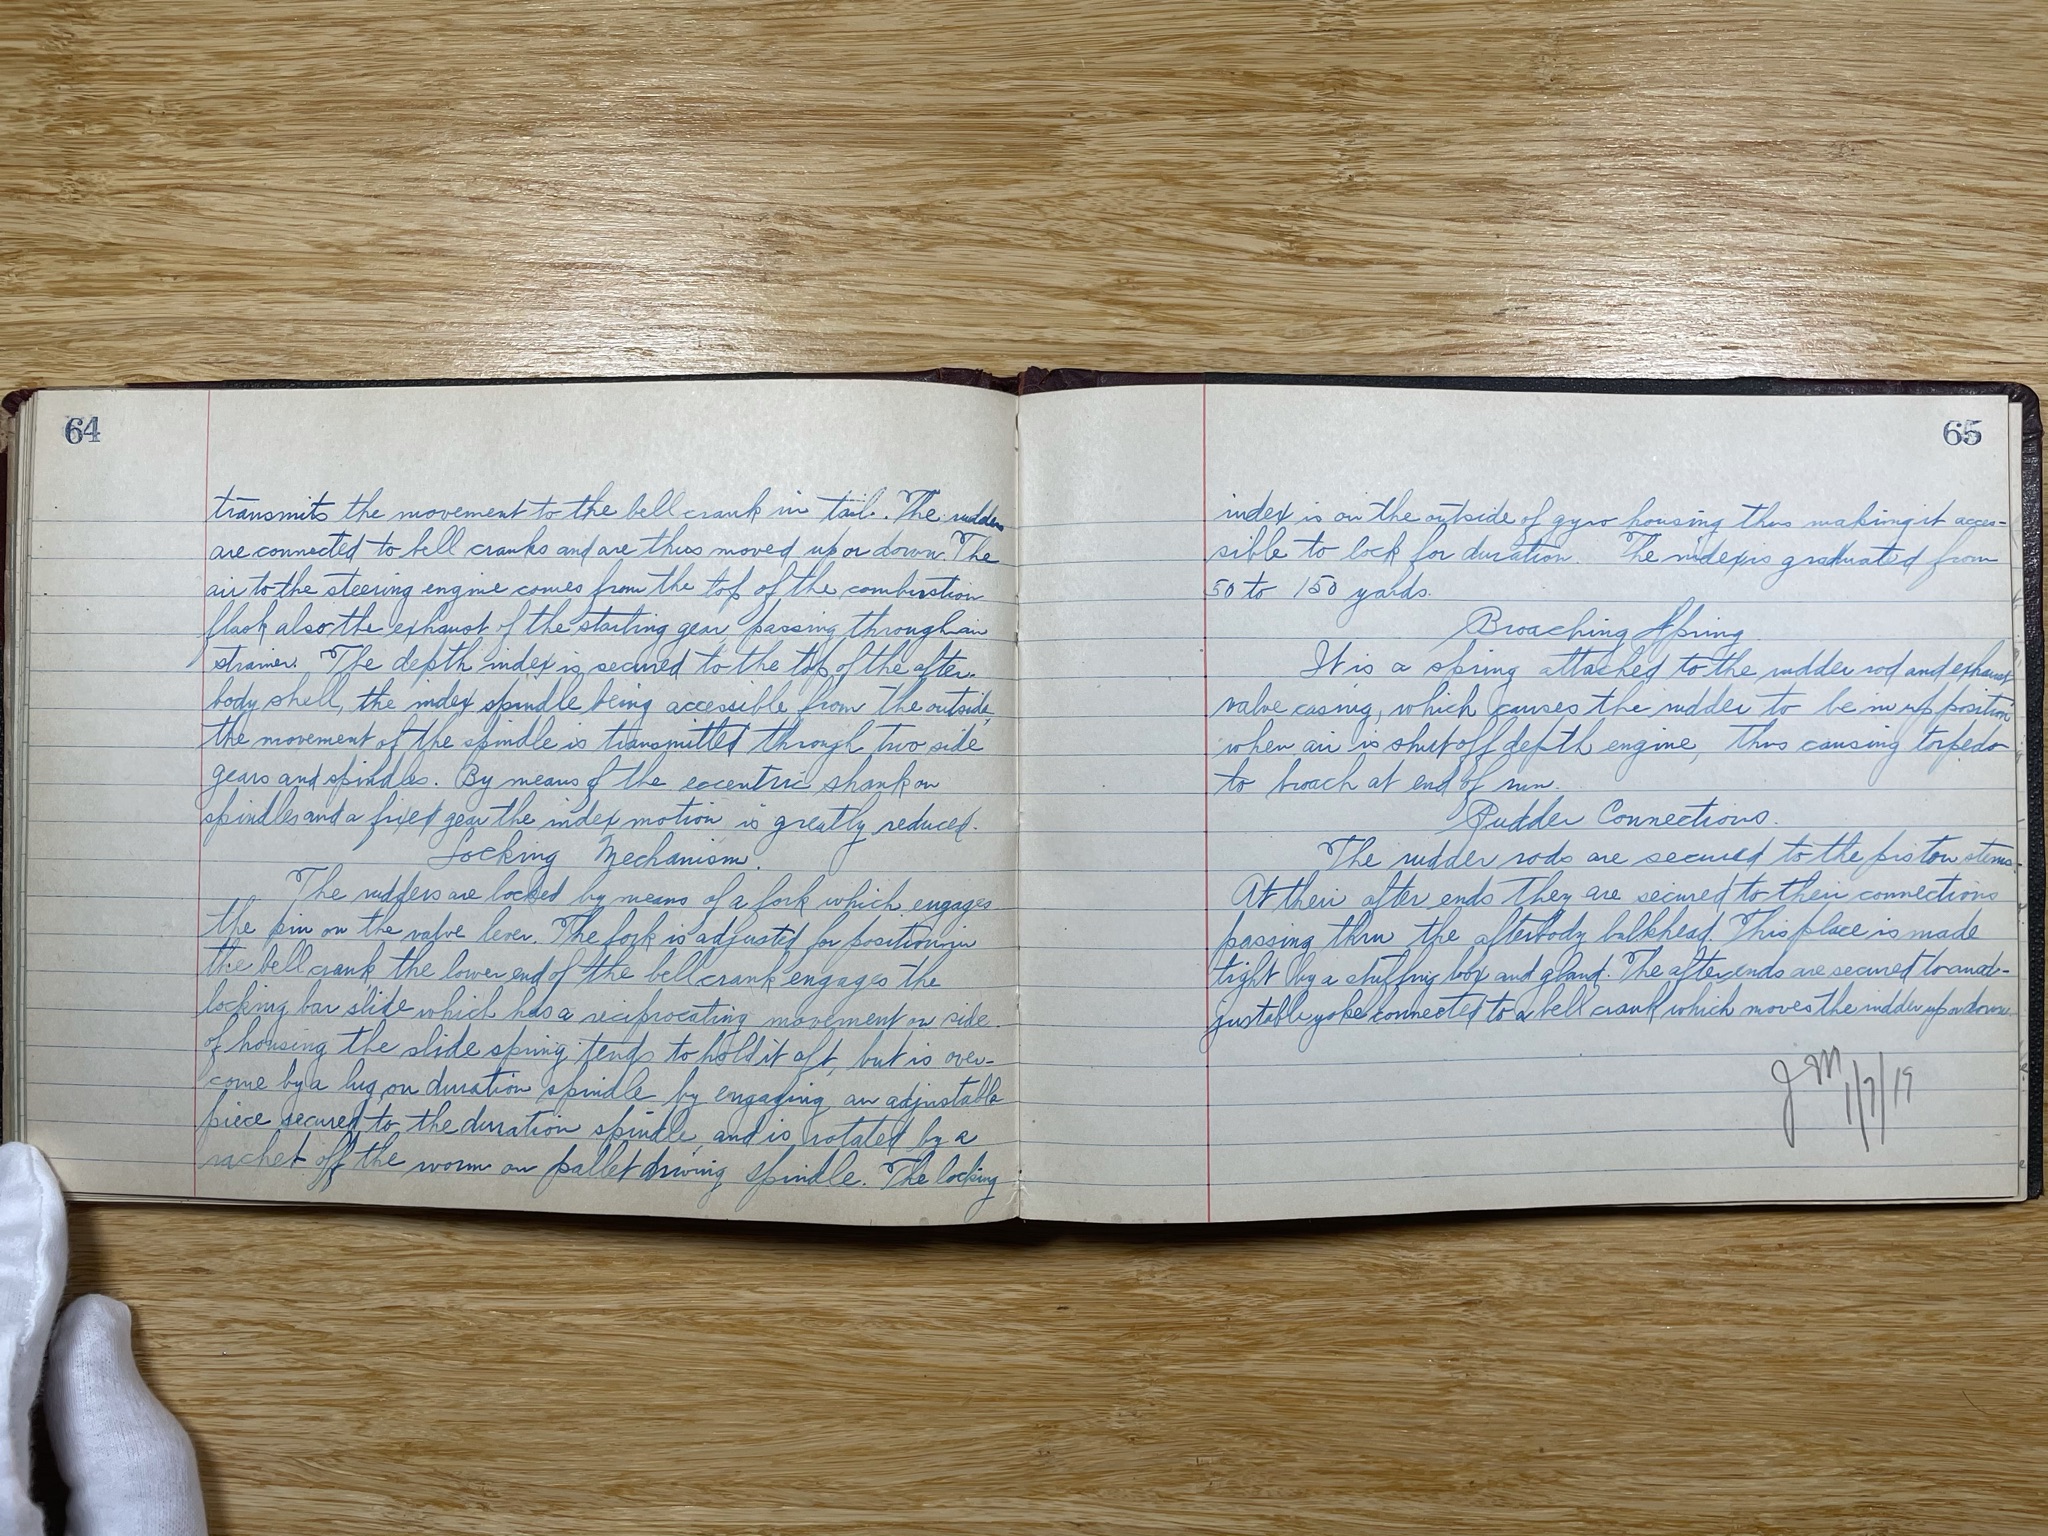 64
transmits the movement to the bell crank in tail. The rudders
are connected to bell cranks and are thus moved up or down. The
air to the steering engine comes from the top of the combustion
flask also the exhaust of the starting gear passing through an
strainer. The depth index is secured to the top of the after-
body shell, the index spindle being accessible from the outside,
the movement of the spindle is transmitted through two side
gears and spindles. By means of the eccentric shank on
spindles and a fixed gear the index motion is greatly reduced.
Locking Mechanism.
The rudders are locked by means of a fork which engages
the pin on the valve lever. The fork is adjusted for position in
the bell crank, the lower end of the bell crank engages the
locking bar slide which has a reciprocating movement on side
of housing the slide spring tends to hold it aft, but is over-
come by a lug on duration spindle by engaging an adjustable
piece secured to the duration spindle, and is rotated by a
rachet off the worm on pallet driving spindle. The locking
65
index is on the outside of gyro housing thus making it acces-
sible to lock for duration. The index is graduated from
50 to 150 yards.
Broaching Spring
It is a spring attached to the rudder rod and exhaust
valve casing, which causes the rudder to be in up position
when air is shut off depth engine, thus causing torpedo
to broach at end of run.
Rudder Connections.
The rudder rods are secured to the piston stems.
At their after ends they are secured to their connections
passing thru the afterbody bulkhead. This place is made
tight by a stuffing box and gland. The after ends are secured to an ad-
justable yoke connected to a bell crank which moves the rudder up or down
JM 1/7/19